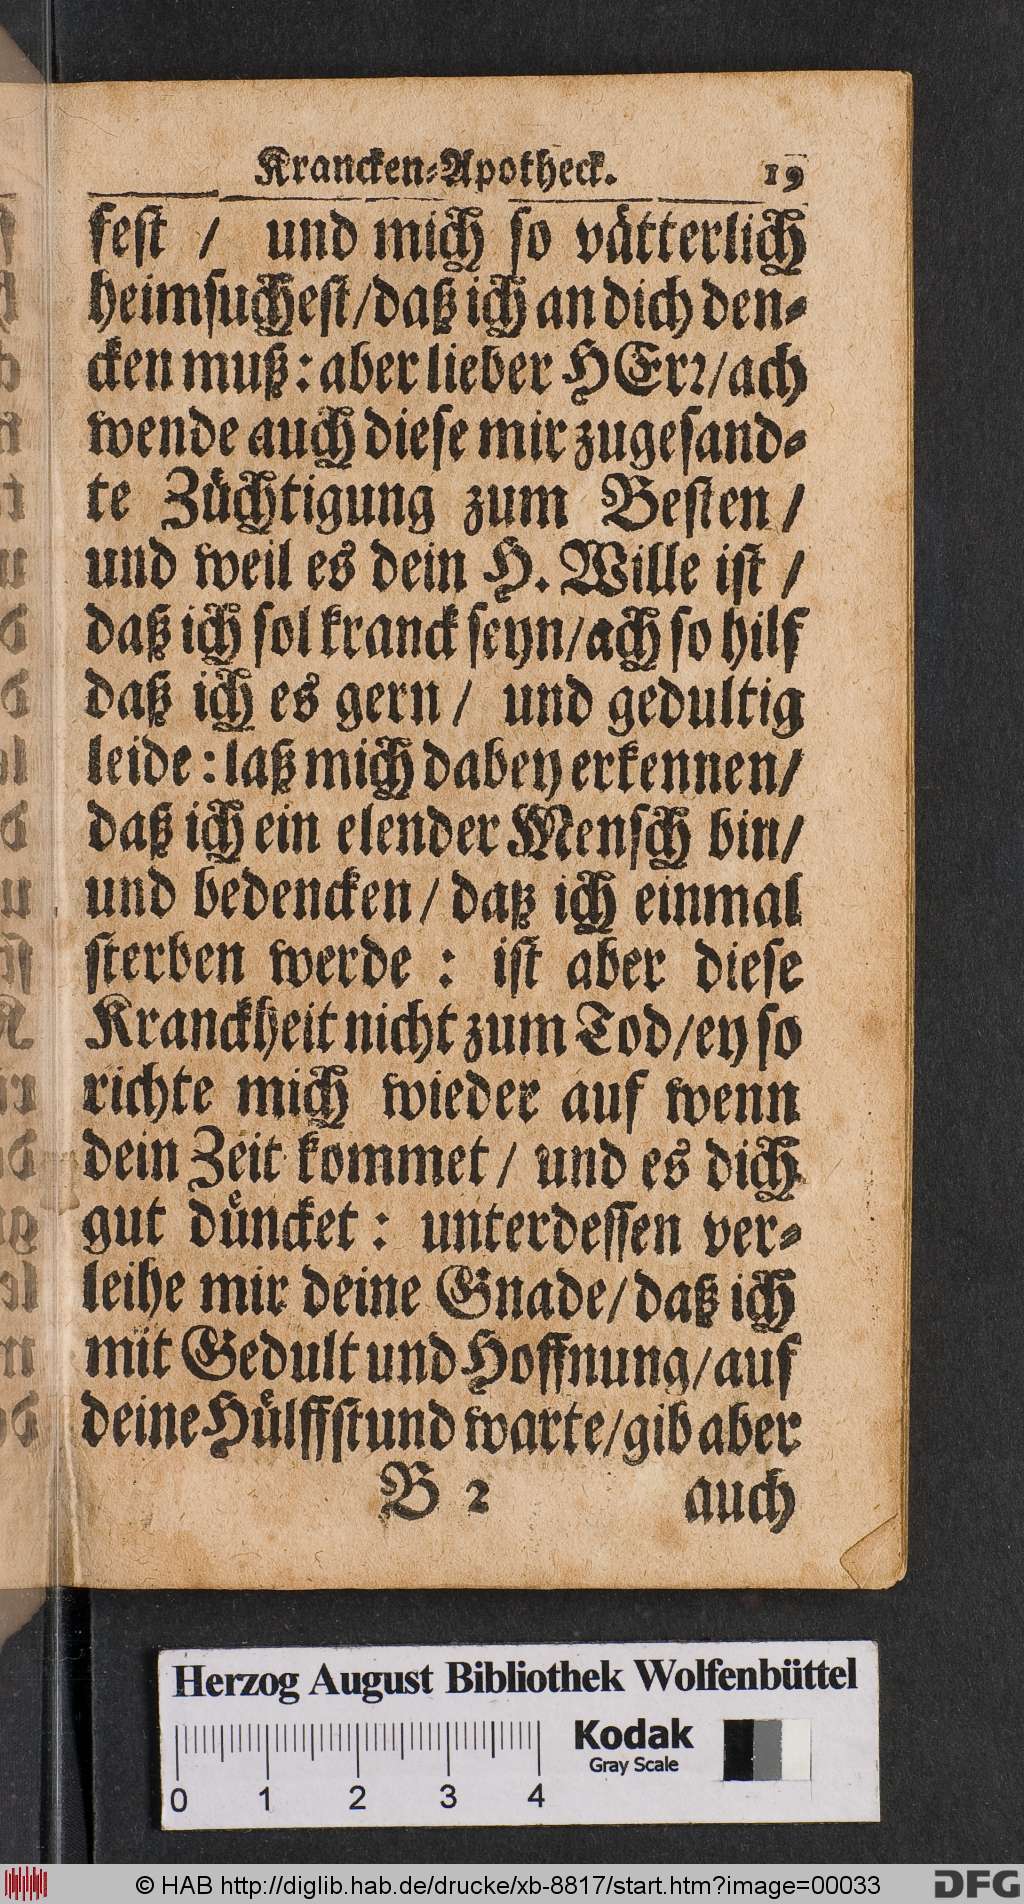 Krancken-Apotheck. 19
fest / und mich so vätterlich
heimsuchest/daß ich an dich den-
cken muß: aber lieber HErꝛ/ach
wende auch diese mir zugesand-
te Züchtigung zum Besten /
und weil es dein H. Wille ist /
daß ich sol kranck seyn/ach so hilf
daß ich es gern / und gedultig
leide: laß mich dabey erkennen/
daß ich ein elender Mensch bin/
und bedencken / daß ich einmal
sterben werde : ist aber diese
Kranckheit nicht zum Tod/ey so
richte mich wieder auf wenn
dein Zeit kommet / und es dich
gut düncket : unterdessen ver-
leihe mir deine Gnade/daß ich
mit Gedult und Hoffnung/auf
deine Hülffstund warte/gib aber
B 2 auch
Herzog August Bibliothek Wolfenbüttel
Kodak
Gray Scale
0 1 2 3 4
© HAB http://diglib.hab.de/drucke/xb-8817/start.htm?image=00033
DFG